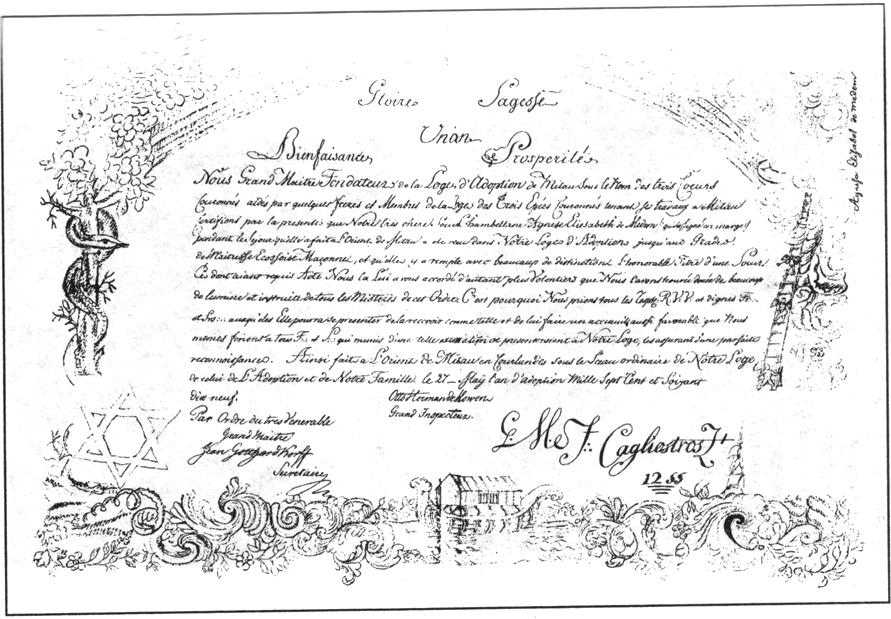 Gloire Sagesse
Union
Bienfaisance Prosperité
Nous Grand Maitre Fondateur de la Loge d'Adoption de Mitau sous le Nom des trois Coeurs
Couronnés aidés par quelques freres et Membres de la Loge des Trois Epées Couronnés tenant ses travaux a Mitau
Certifions par la presente que Notre tres chere Soeur Chambellene Agnese Elisabeth de Medem qui a signé en marge
pendant le sejour qu'elle a fait a l'Orient de Mitau a été reçu dans Notre Loge d'Adoption jusqu'aux Grade
de Maitresse Ecossaise Maçonne, et qu'elle y a remplé avec beaucoup de distinctions l'honorable Titre d'une Soeur
Ces dont aiant requis Acte Nous la Lui avons accordé d'autant plus Volontiers que Nous l'avons trouvée douée de beaucoup
de lumiere et instruite de tous les Misteres de ces Ordre C'est pourquoi Nous prions tous les R.V.V. et dignes Fr.
et Srs... auxquels Elle pourra se presenter de la recevoir comme telle et de lui faire un accueil aussi favorable que Nous
memes ferions a tous F. et S. qui munis d'une telle se presenteroient a Notre Loge, les assurant d'une parfaite
reconnoissance. Ainsi fait a L'Orient de Mitau en Courlandes sous le Sceau ordinaire de Notre Loge
de celui de L'Adoption et de Notre Famille le 27 May l'an d'adoption Mille Sept Cent et Soixant
dix neuf. Otto Herman de Howen
Par Ordre du tres Venerable Grand Inspecteur.
Grand Maitre
Jean Gotthard Korff
Secretaire
G. M. e F. Cagliostros
1255
Agnese Elisabet de Medem